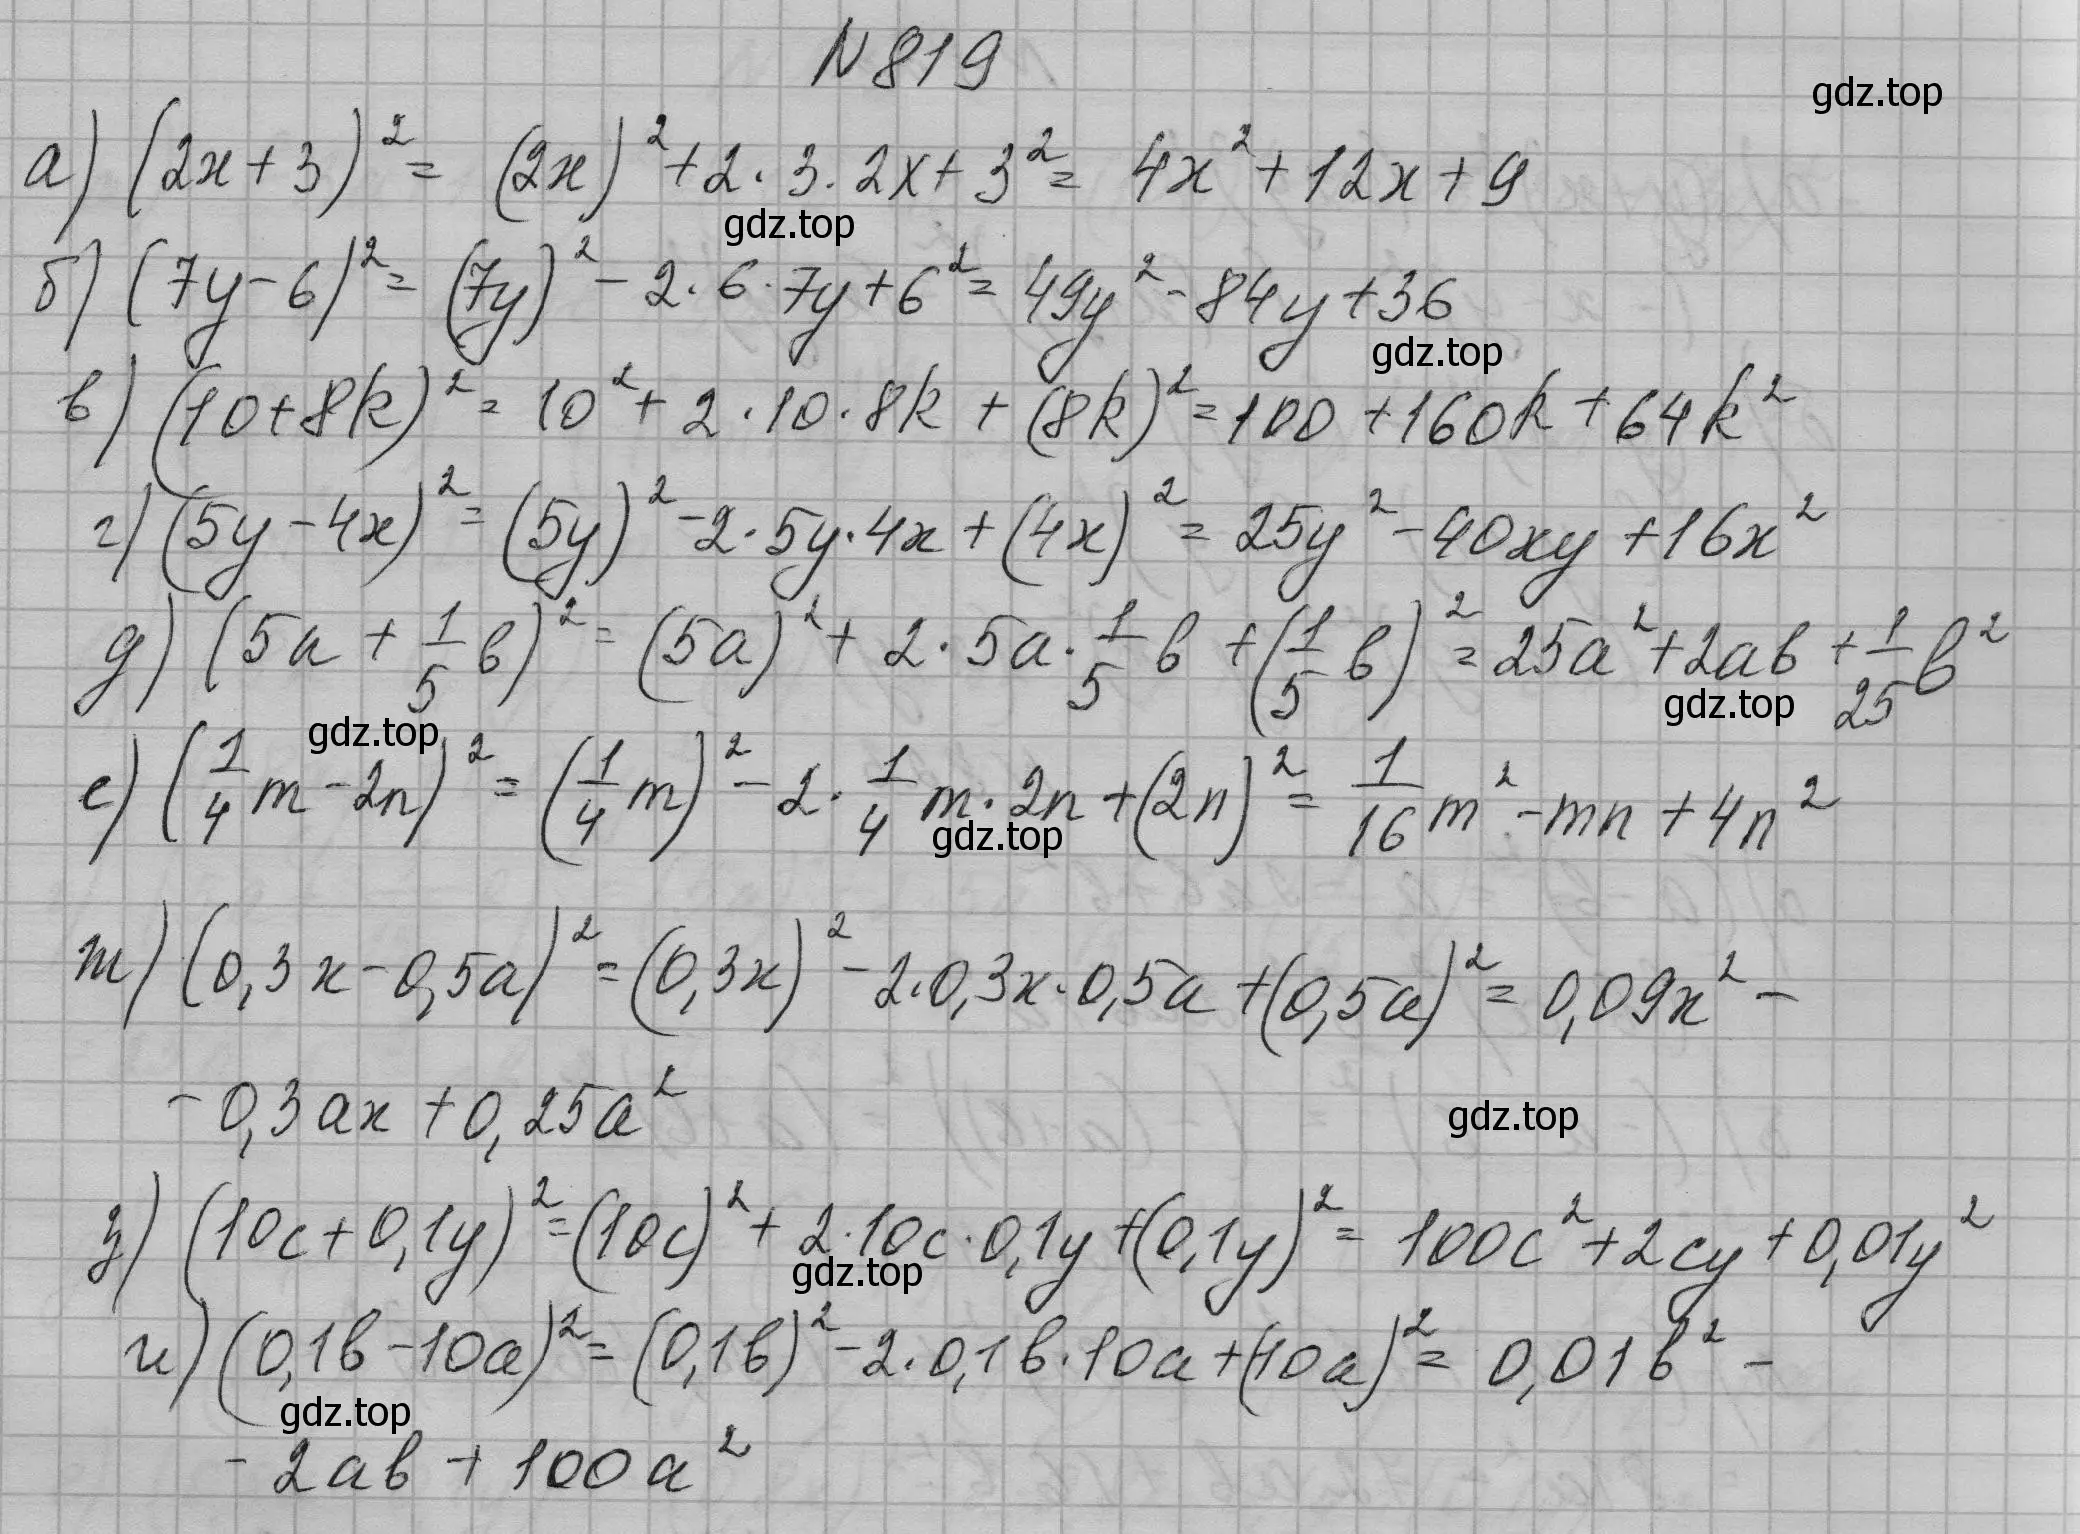 N819
gdz.top
а) (2x+3)² = (2x)² + 2·3·2x + 3² = 4x² + 12x + 9
gdz.top
б) (7y-6)² = (7y)² - 2·6·7y + 6² = 49y² - 84y + 36
gdz.top
в) (10+8k)² = 10² + 2·10·8k + (8k)² = 100 + 160k + 64k²
г) (5y-4x)² = (5y)² - 2·5y·4x + (4x)² = 25y² - 40xy + 16x²
д) (5a + 1/5 b)² = (5a)² + 2·5a·1/5 b + (1/5 b)² = 25a² + 2ab + 1/25 b²
gdz.top
gdz.top
е) (1/4 m - 2n)² = (1/4 m)² - 2·1/4 m·2n + (2n)² = 1/16 m² - mn + 4n²
gdz.top
ж) (0,3x - 0,5a)² = (0,3x)² - 2·0,3x·0,5a + (0,5a)² = 0,09x² -
- 0,3ax + 0,25a²
gdz.top
з) (10c + 0,1y)² = (10c)² + 2·10c·0,1y + (0,1y)² = 100c² + 2cy + 0,01y²
gdz.top
и) (0,1b - 10a)² = (0,1b)² - 2·0,1b·10a + (10a)² = 0,01b² -
gdz.top
- 2ab + 100a²